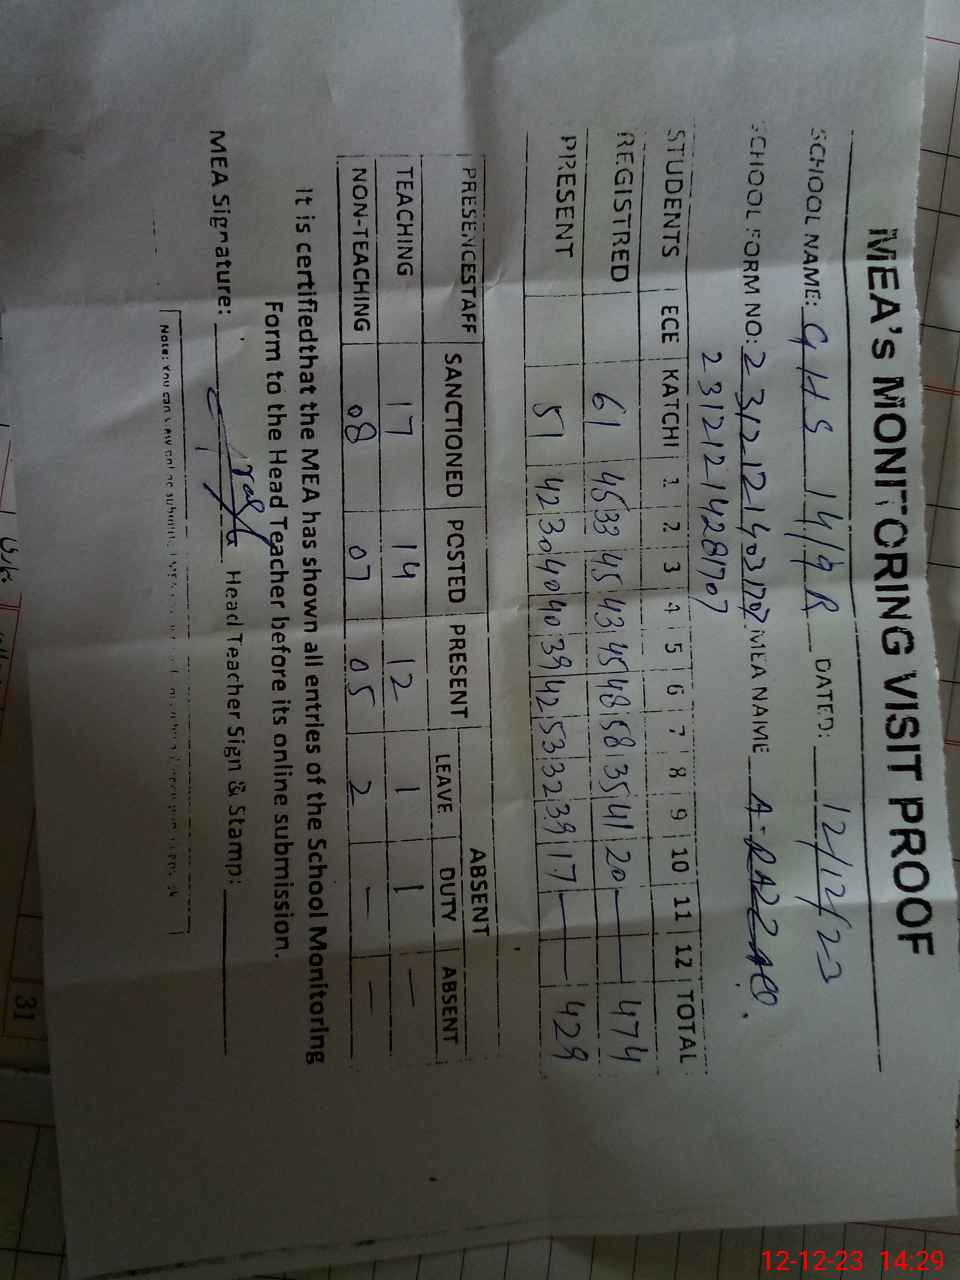 MEA's MONITORING VISIT PROOF
SCHOOL NAME: GHS 14/9R DATED: 12/12/23
SCHOOL FORM NO: MEA NAME A. RAZZAQ.
STUDENTS ECE KATCHI 1 2 3 4 5 6 7 8 9 10 11 12 TOTAL
REGISTRED 61 45 33 45 43 45 48 58 35 41 20 — 474
PRESENT 51 42 30 40 40 39 42 53 32 39 17 — 429
PRESENCESTAFF SANCTIONED POSTED PRESENT ABSENT
LEAVE DUTY ABSENT
TEACHING 17 14 12 1 1 —
NON-TEACHING 08 07 05 2 — —
It is certifiedthat the MEA has shown all entries of the School Monitoring
Form to the Head Teacher before its online submission.
MEA Signature: Head Teacher Sign & Stamp:
Note: You can view
31
12-12-23 14:29